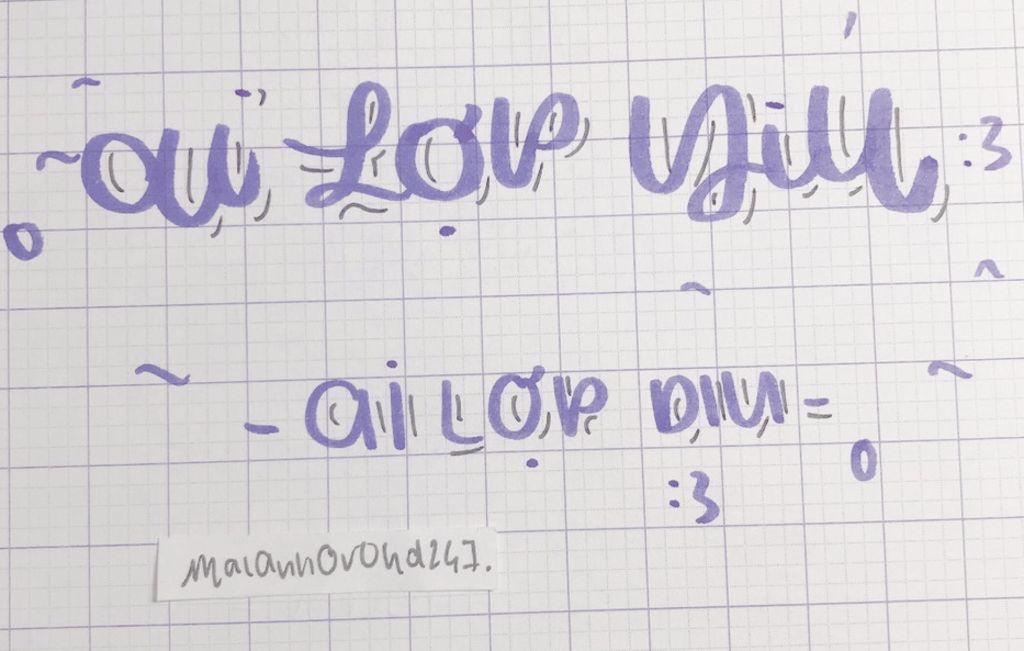 ~ ai Lợp Yiu :3
- ai Lợp Diu =
:3
maianhOvOhd247.